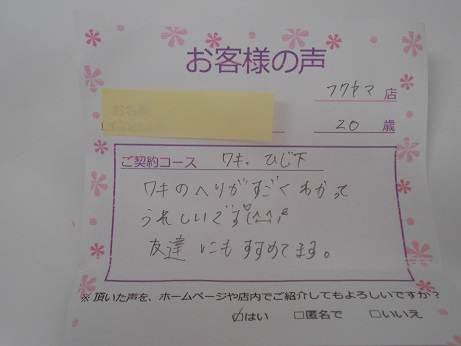 お客様の声
フクヤマ 店
お名前
20 歳
ご契約コース ワキ。ひじ下
ワキのへりがすごくわかって
うれしいです(^^)
友達にもすすめてます。
※頂いた声を、ホームページや店内でご紹介してもよろしいですか?
☑はい □匿名で □いいえ